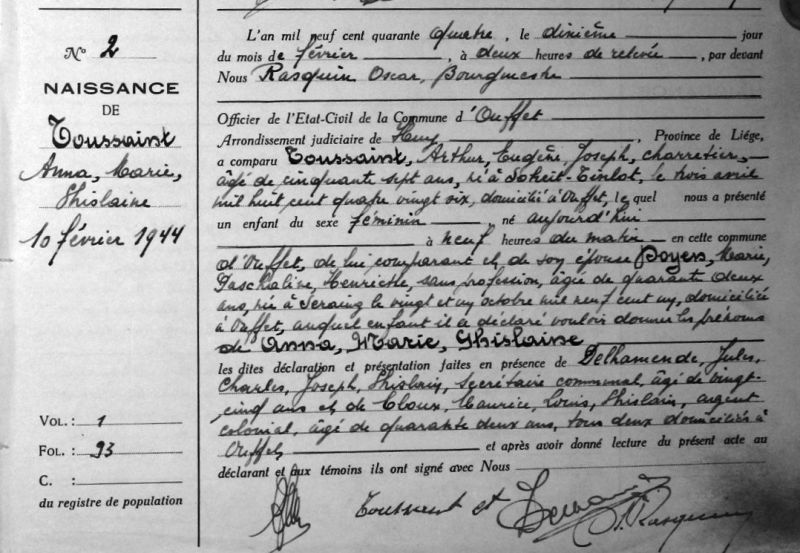 N° 2
NAISSANCE
DE
Toussaint
Anna, Marie,
Ghislaine
10 février 1944
VOL. : 1
FOL. : 93
C. :
du registre de population
L'an mil neuf cent quarante quatre, le dixième jour
du mois de février, à deux heures de relevée, par devant
Nous Rasquin Oscar, Bourgmestre
Officier de l'Etat-Civil de la Commune d'Ouffet
Arrondissement judiciaire de Huy, Province de Liége,
a comparu Toussaint, Arthur, Eugène, Joseph, charretier,
âgé de cinquante sept ans, né à Soheit-Tinlot, le trois avril
mil huit cent quatre vingt six, domicilié à Ouffet, le quel nous a présenté
un enfant du sexe féminin, né aujourd'hui
à neuf heures du matin en cette commune
d'Ouffet, de lui comparant et de son épouse Poyen, Marie,
Paschaline, Henriette, sans profession, âgée de quarante deux
ans, née à Seraing le vingt et un octobre mil neuf cent un, domiciliée
à Ouffet, auquel enfant il a déclaré vouloir donner les prénoms
de Anna, Marie, Ghislaine
les dites déclaration et présentation faites en présence de Delhamende, Jules,
Charles, Joseph, Ghislain, secrétaire communal, âgé de vingt-
cinq ans et de Cloux, Maurice, Louis, Ghislain, agent
colonial, âgé de quarante deux ans, tous deux domiciliés à
Ouffet et après avoir donné lecture du présent acte au
déclarant et aux témoins ils ont signé avec Nous
Toussaint et
O. Rasquin